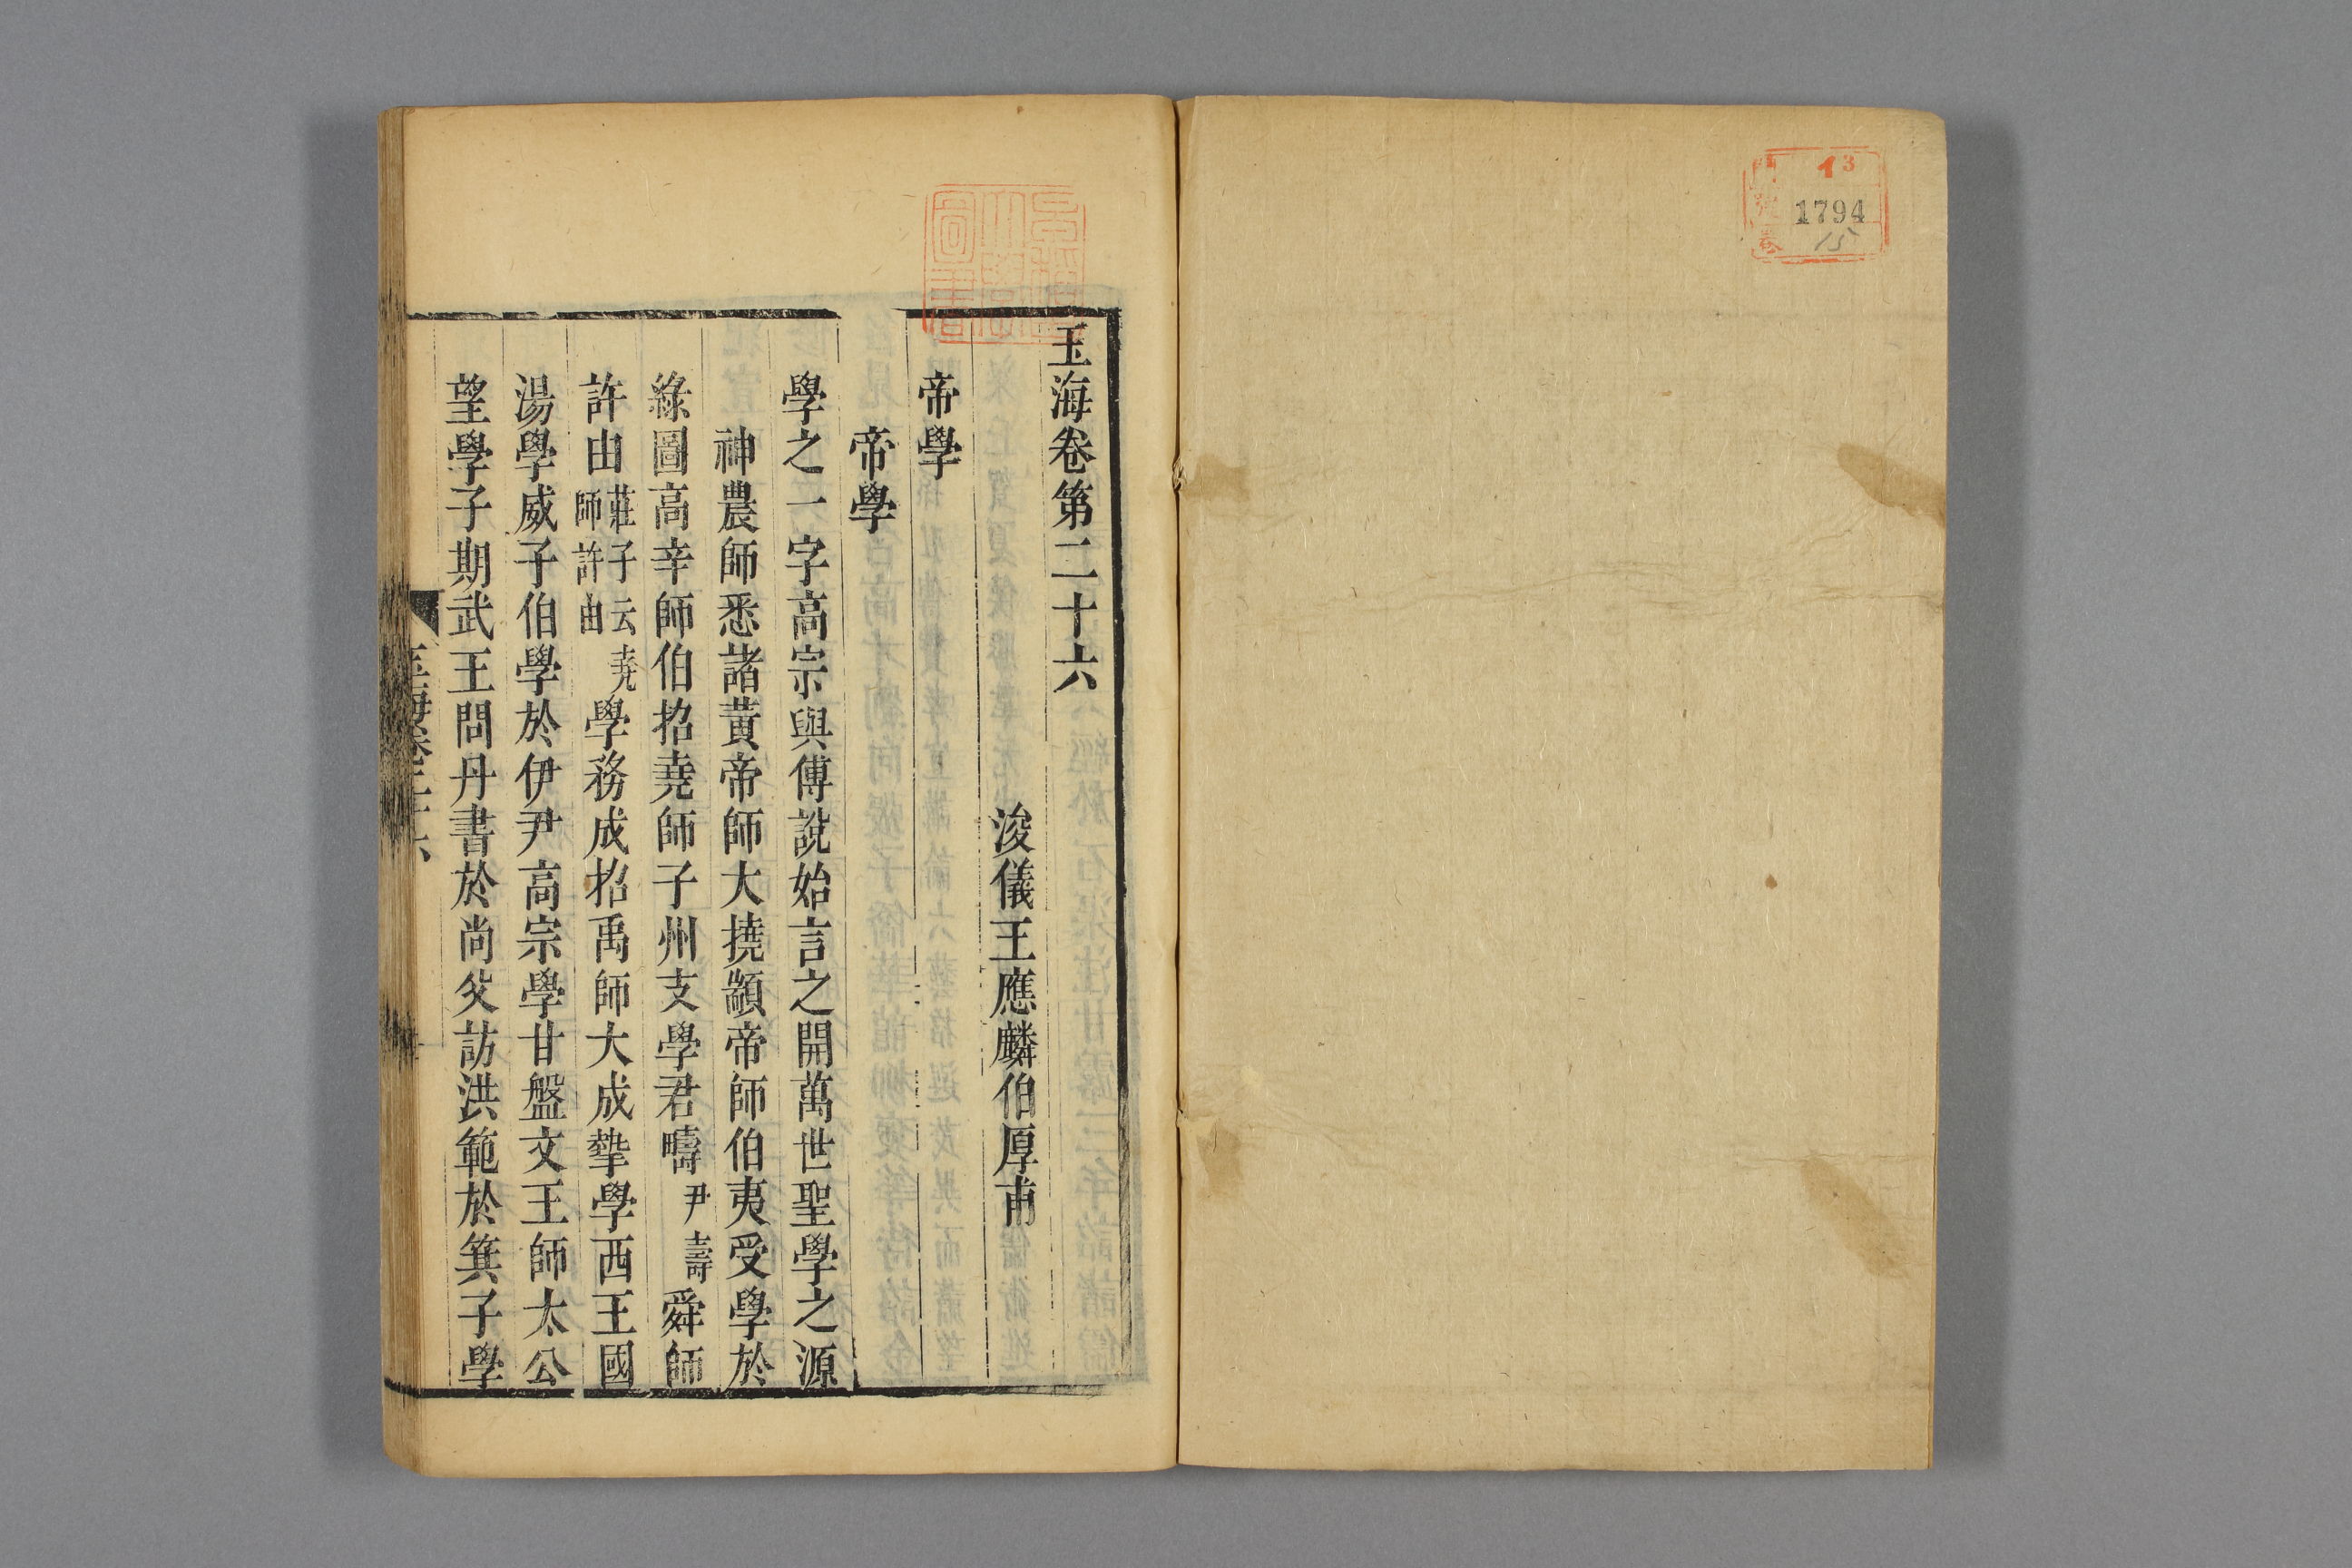 門 13
號 1794
卷 15
玉海卷第二十六
浚儀王應麟伯厚甫
帝學
帝學
學之一字高宗與傅說始言之開萬世聖學之源
神農師悉諸黃帝師大撓顓帝師伯夷受學於
綠圖高辛師伯招堯師子州支學君疇尹壽舜師
許由莊子云堯師許由學務成招禹師大成摯學西王國
湯學威子伯學於伊尹高宗學甘盤文王師太公
望學子期武王問丹書於尚父訪洪範於箕子學
玉海卷二十六